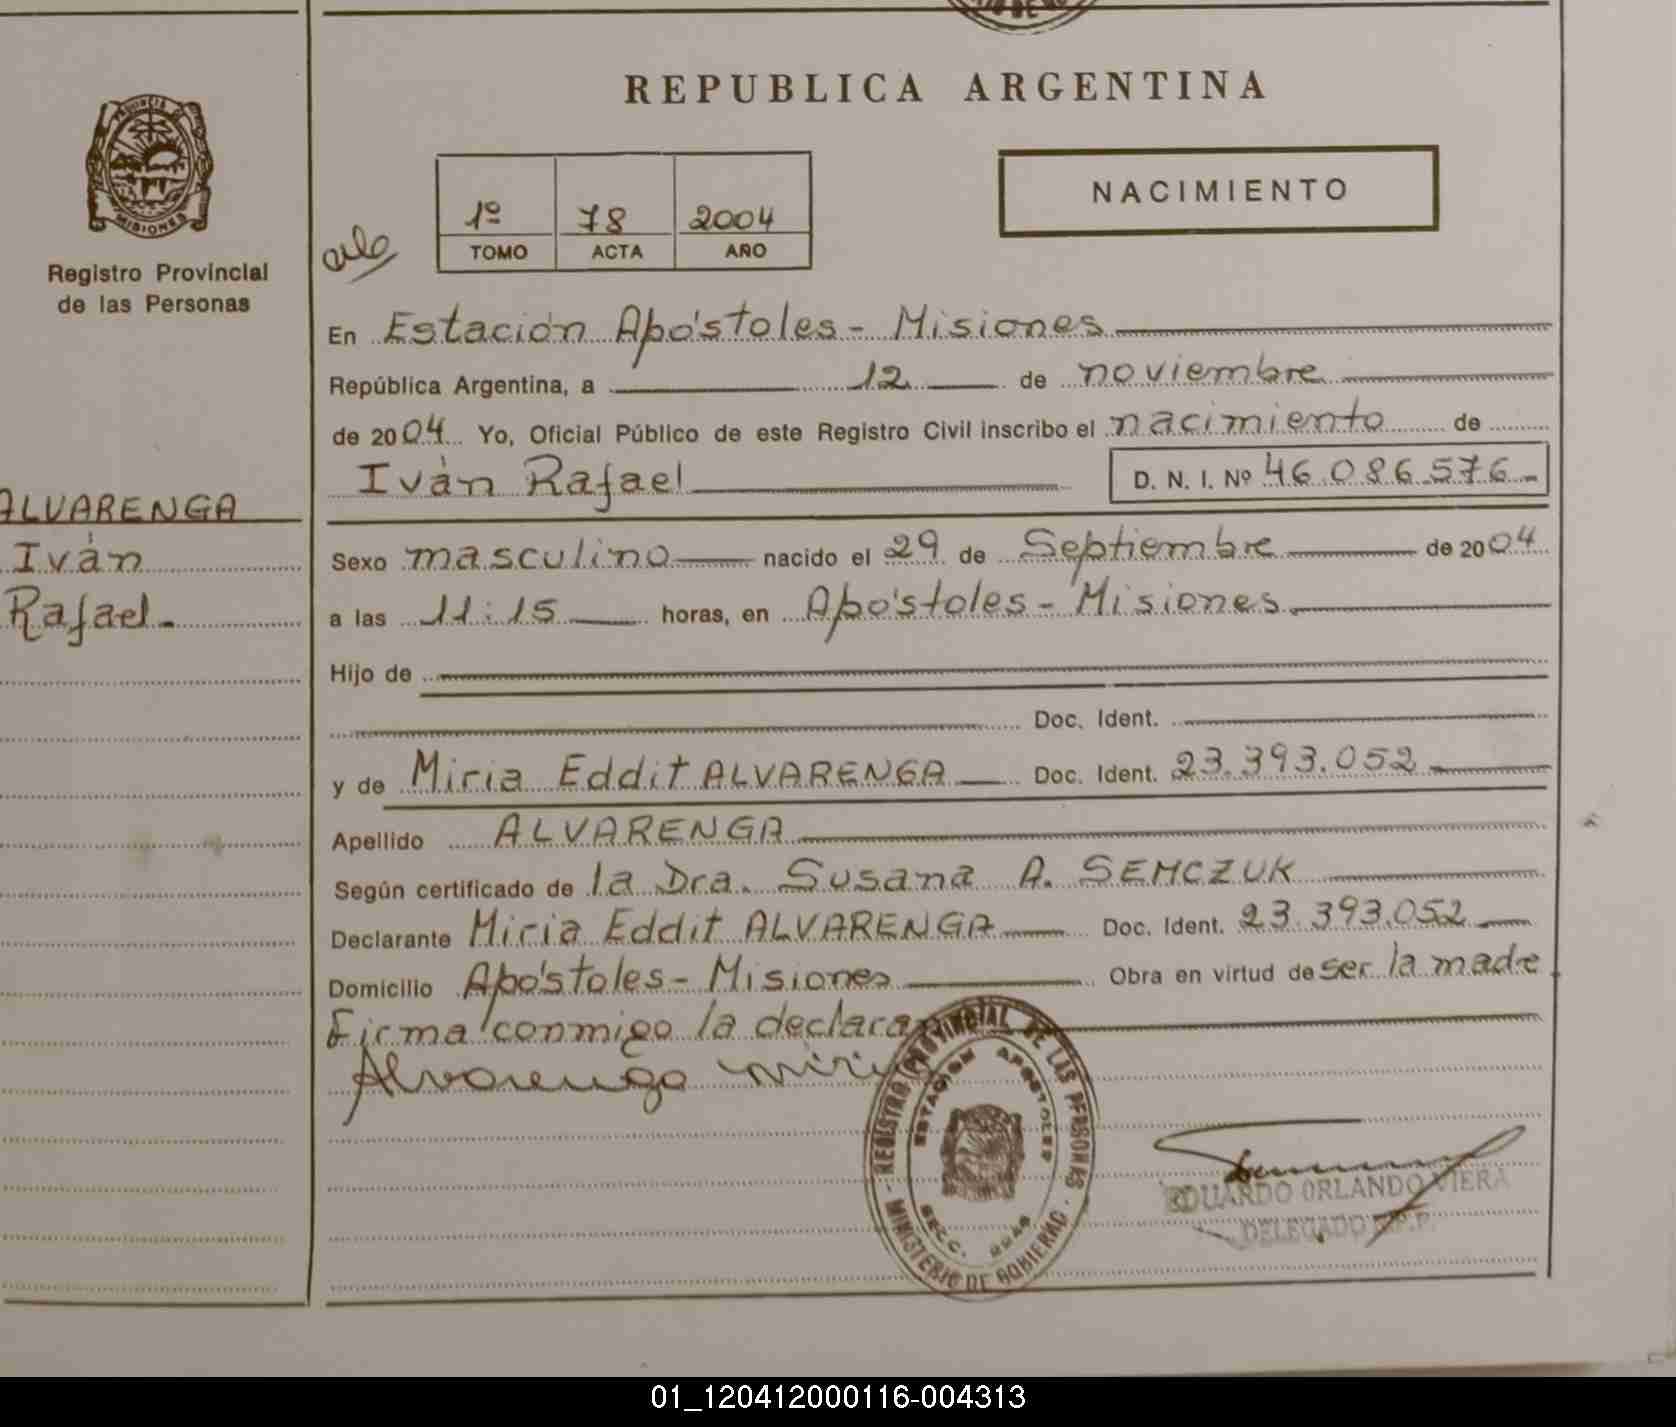 REPUBLICA ARGENTINA
MISIONES
Registro Provincial
de las Personas
ALVARENGA
Iván
Rafael.-
1º 78 2004
TOMO ACTA AÑO
NACIMIENTO
En Estación Apóstoles - Misiones
República Argentina, a 12 de noviembre
de 2004 Yo, Oficial Público de este Registro Civil inscribo el nacimiento de
Iván Rafael D. N. I. Nº 46.086.576.-
Sexo masculino nacido el 29 de Septiembre de 2004
a las 11:15 horas, en Apóstoles - Misiones.
Hijo de
Doc. Ident.
y de Miria Eddit ALVARENGA Doc. Ident. 23.393.052
Apellido ALVARENGA
Según certificado de la Dra. Susana A. SEMCZUK
Declarante Miria Eddit ALVARENGA Doc. Ident. 23.393.052
Domicilio Apóstoles - Misiones Obra en virtud de ser la madre.
Firma conmigo la
Alvarenga
REGISTRO PROVINCIAL DE LAS PERSONAS
ESTACION APOSTOLES
SECC.
MINISTERIO DE GOBIERNO
EDUARDO ORLANDO VIERA
DELEGADO
01_120412000116-004313